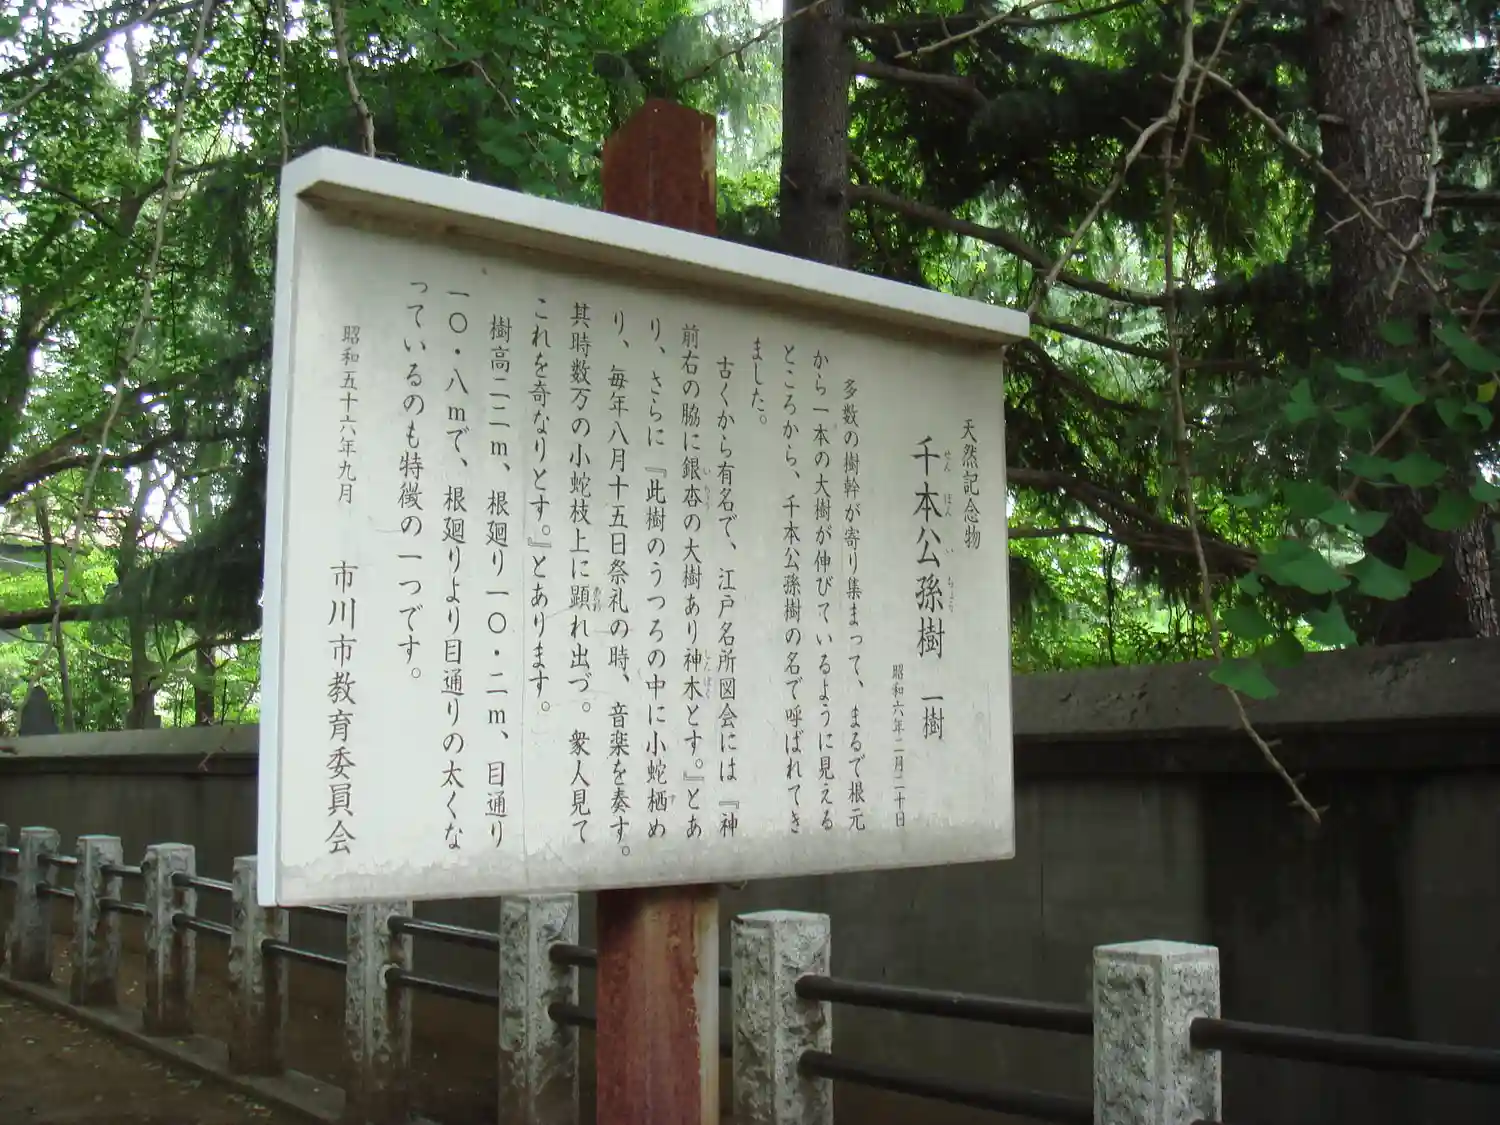 天然記念物
千本公孫樹 一樹
せんぼんいちょう
昭和六年二月二十日
多数の樹幹が寄り集まって、まるで根元
から一本の大樹が伸びているように見える
ところから、千本公孫樹の名で呼ばれてき
ました。
古くから有名で、江戸名所図会には『神
前右の脇に銀杏の大樹あり神木とす。』とあ
いちょう
しんぼく
り、さらに『此樹のうつろの中に小蛇栖め
す
り、毎年八月十五日祭礼の時、音楽を奏す。
其時数万の小蛇枝上に顕れ出づ。衆人見て
あらわ
これを奇なりとす。』とあります。
樹高二二m、根廻り一〇・二m、目通り
一〇・八mで、根廻りより目通りの太くな
っているのも特徴の一つです。
昭和五十六年九月
市川市教育委員会